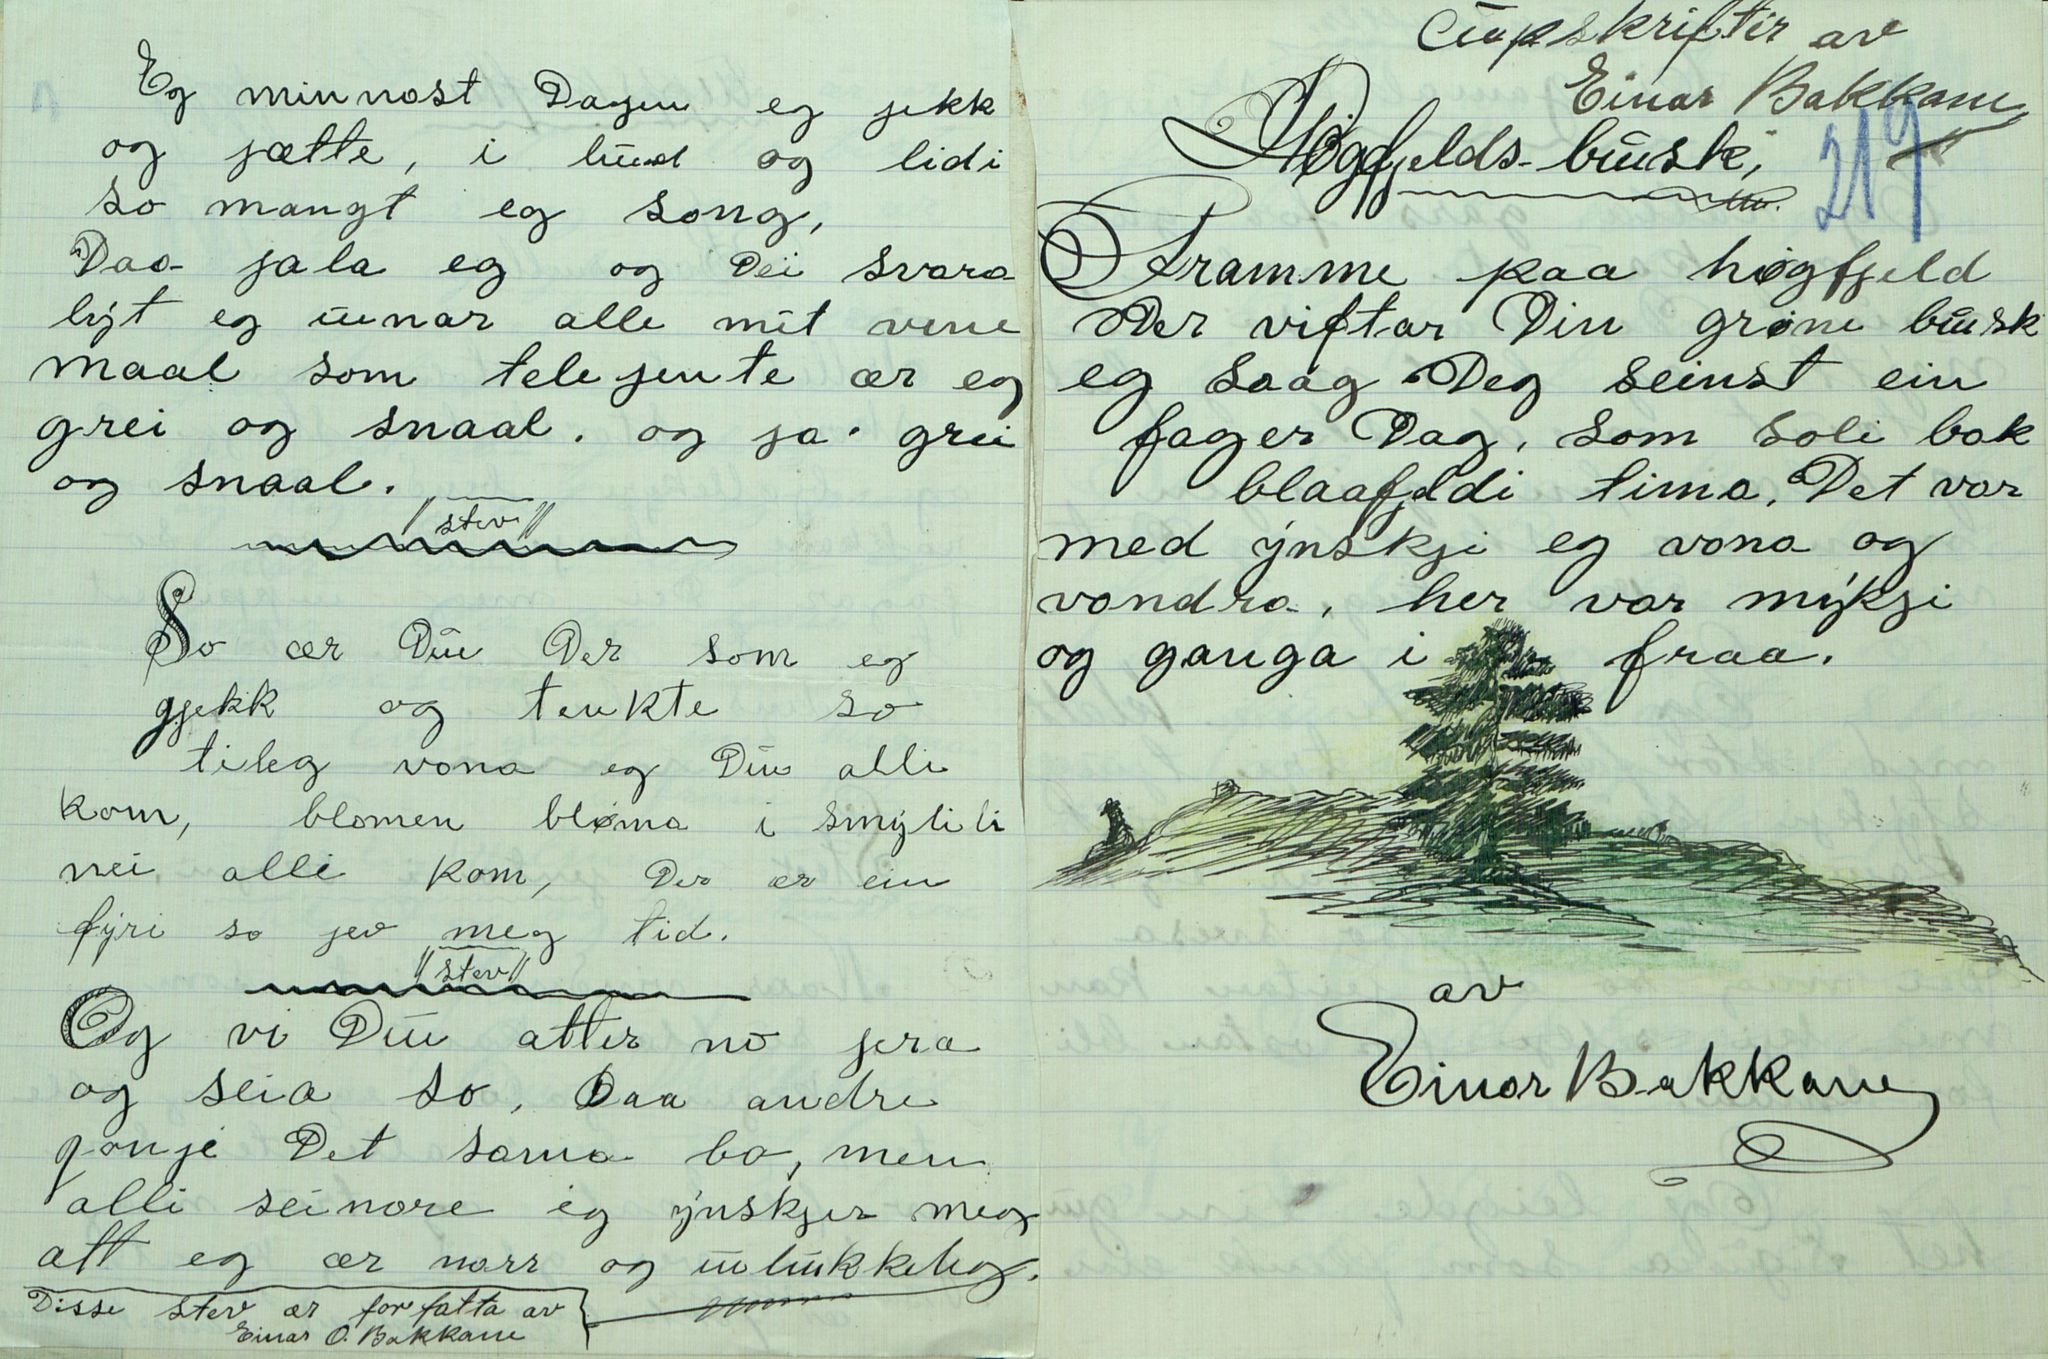 Eg minnast Dagen eg jekk
og jætte, i lund og lidi
so mangt eg song,
Daa jala eg og Dei svara
lyt eg unar alle mit vene
maal som telejente ær eg
grei og snaal. og ja grei
og snaal.
"stev"
So ær Du Der som eg
gjekk og tenkte so
tileg vona eg Du alli
kom, blomen bløma i smylili
nei alli kom, Der ær ein
fyri so jev meg tid.
"stev"
Og vi Du atter no jera
og seia so, Daa andre
gonje Det sama ba, men
alli seinare eg ynskjer meg
att eg ær narr og ulukkeleg.
Disse stev ær forfatta av
Einar O. Bakkane
Uupskriftir av
Einar Bakkane
219
Høgfjelds-busk,
Framme paa høgfjeld
Der viftar Din grøne busk
eg saag Deg seinst ein
fager Dag, som soli bak
blaafjeldi tima, Det var
med ynskji eg vona og
vandra, her var mykji
og ganga i fraa.
av
Einar Bakkane